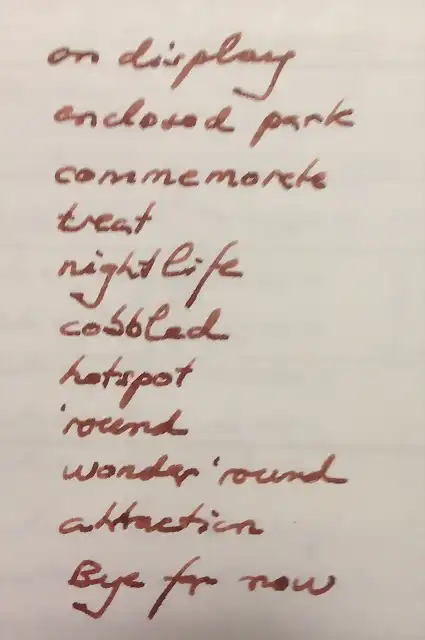 on display
enclosed park
commemorate
treat
nightlife
cobbled
hotspot
'round
wonder 'round
attraction
Bye for now